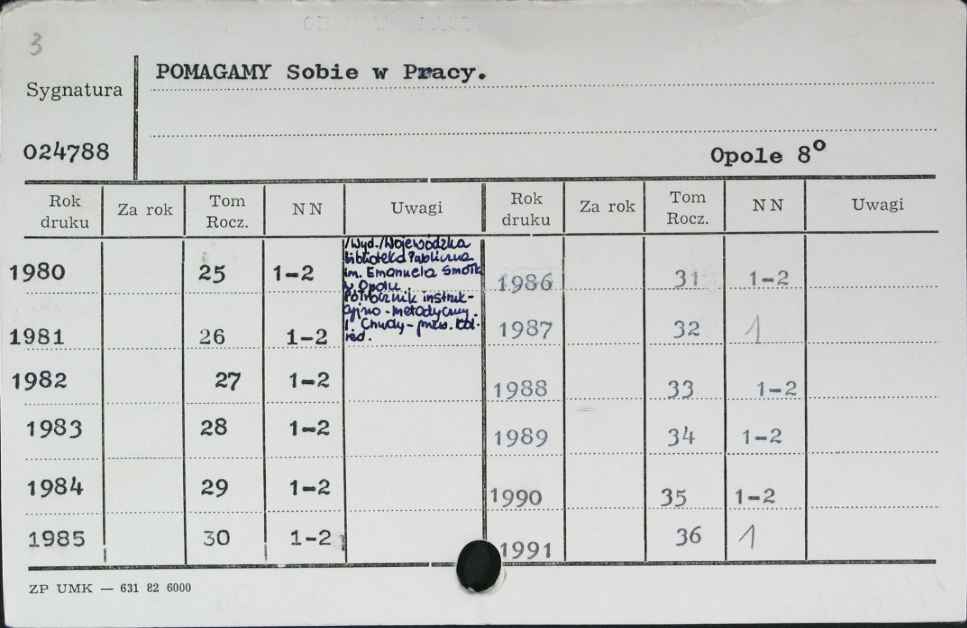 3
POMAGAMY Sobie w Pracy.
Sygnatura
024788
Opole 8°
Rok druku Za rok Tom Rocz. NN Uwagi Rok druku Za rok Tom Rocz. NN Uwagi
/Wyd./Wojewódzka
Biblioteka Publiczna
im. Emanuela Smołk
w Opolu.
Półrocznik instruk-
cyjno-metodyczny.
Chudy - przew. Kol.
red.
1980 25 1-2 1986 31 1-2
1981 26 1-2 1987 32 1
1982 27 1-2 1988 33 1-2
1983 28 1-2 1989 34 1-2
1984 29 1-2 1990 35 1-2
1985 30 1-2 1991 36 1
ZP UMK — 631 82 6000